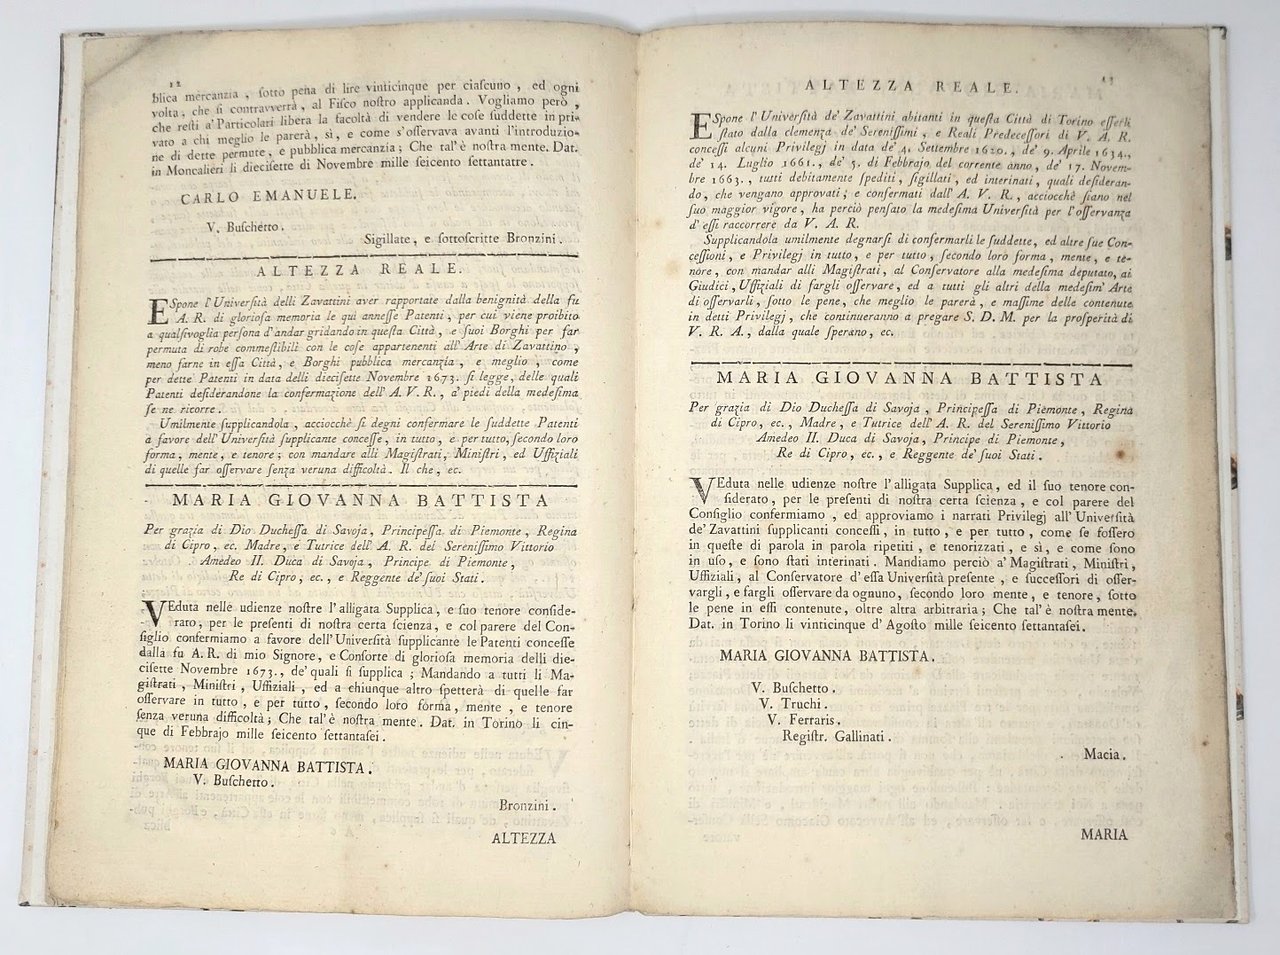 12
blica mercanzia , ſotto pena di lire vinticinque per ciaſcuno , ed ogni
volta, che ſi contravverrà, al Fiſco noſtro applicanda. Vogliamo però ,
che reſti a' Particolari libera la facoltà di vendere le coſe ſuddette in pri-
vato a chi meglio le parerà, sì, e come s'oſſervava avanti l'introduzio-
ne di dette permute, e pubblica mercanzia; Che tal' è noſtra mente. Dat.
in Moncalieri li dieciſette di Novembre mille ſeicento ſettantatre.
CARLO EMANUELE.
V. Buſchetto.
Sigillate, e ſottoſcritte Bronzini.
ALTEZZA REALE.
ESpone l'Univerſità delli Zavattini aver rapportate dalla benignità della fu
A. R. di glorioſa memoria le qui anneſſe Patenti, per cui viene proibito
a qualſivoglia perſona d'andar gridando in queſta Città, e ſuoi Borghi per far
permuta di robe commeſtibili con le coſe appartenenti all' Arte di Zavattino ,
meno farne in eſſa Città, e Borghi pubblica mercanzia, e meglio , come
per dette Patenti in data delli dieciſette Novembre 1673. ſi legge, delle quali
Patenti deſiderandone la confermazione dell' A. V. R., a' piedi della medeſima
ſe ne ricorre.
Umilmente ſupplicandola , acciocchè ſi degni confermare le ſuddette Patenti
a favore dell' Univerſità ſupplicante conceſſe, in tutto, e per tutto, ſecondo loro
forma, mente, e tenore; con mandare alli Magiſtrati, Miniſtri, ed Uffiziali
di quelle far oſſervare ſenza veruna difficoltà. Il che, ec.
MARIA GIOVANNA BATTISTA
Per grazia di Dio Ducheſſa di Savoja, Principeſſa di Piemonte, Regina
di Cipro, ec. Madre, e Tutrice dell' A. R. del Sereniſſimo Vittorio
Amedeo II. Duca di Savoja, Principe di Piemonte,
Re di Cipro, ec., e Reggente de' ſuoi Stati.
VEduta nelle udienze noſtre l'alligata Supplica, e ſuo tenore conſide-
rato, per le preſenti di noſtra certa ſcienza, e col parere del Con-
ſiglio confermiamo a favore dell'Univerſità ſupplicante le Patenti conceſſe
dalla fu A. R. di mio Signore, e Conſorte di glorioſa memoria delli die-
ciſette Novembre 1673., de' quali ſi ſupplica ; Mandando a tutti li Ma-
giſtrati, Miniſtri, Uffiziali, ed a chiunque altro ſpetterà di quelle far
oſſervare in tutto, e per tutto, ſecondo loro forma, mente, e tenore
ſenza veruna difficoltà; Che tal' è noſtra mente. Dat. in Torino li cin-
que di Febbrajo mille ſeicento ſettantaſei.
MARIA GIOVANNA BATTISTA.
V. Buſchetto.
Bronzini.
ALTEZZA
13
ALTEZZA REALE.
ESpone l'Univerſità de' Zavattini abitanti in queſta Città di Torino eſſerli
ſtato dalla clemenza de' Sereniſſimi, e Reali Predeceſſori di V. A. R.
conceſſi alcuni Privilegj in data de' 4. Settembre 1620., de' 9. Aprile 1634.,
de' 14. Luglio 1661., de' 5. di Febbrajo del corrente anno, de' 17. Novem-
bre 1663., tutti debitamente ſpediti, ſigillati, ed interinati, quali deſideran-
do, che vengano approvati; e confermati dall' A. V. R., acciocchè ſiano nel
ſuo maggior vigore, ha perciò penſato la medeſima Univerſità per l'oſſervanza
d'eſſi raccorrere da V. A. R.
Supplicandola umilmente degnarſi di confermarli le ſuddette, ed altre ſue Con-
ceſſioni, e Privilegj in tutto, e per tutto, ſecondo loro forma, mente, e te-
nore, con mandar alli Magiſtrati, al Conſervatore alla medeſima deputato, ai
Giudici, Uffiziali di fargli oſſervare, ed a tutti gli altri della medeſim' Arte
di oſſervarli, ſotto le pene, che meglio le parerà, e maſſime delle contenute
in detti Privilegj, che continueranno a pregare S. D. M. per la proſperità di
V. R. A., dalla quale ſperano, ec.
MARIA GIOVANNA BATTISTA
Per grazia di Dio Ducheſſa di Savoja, Principeſſa di Piemonte, Regina
di Cipro, ec., Madre, e Tutrice dell' A. R. del Sereniſſimo Vittorio
Amedeo II. Duca di Savoja, Principe di Piemonte,
Re di Cipro, ec., e Reggente de' ſuoi Stati.
VEduta nelle udienze noſtre l'alligata Supplica, ed il ſuo tenore con-
ſiderato, per le preſenti di noſtra certa ſcienza, e col parere del
Conſiglio confermiamo, ed approviamo i narrati Privilegj all'Univerſità
de' Zavattini ſupplicanti conceſſi, in tutto, e per tutto, come ſe foſſero
in queſte di parola in parola ripetiti, e tenorizzati, e sì, e come ſono
in uſo, e ſono ſtati interinati. Mandiamo perciò a' Magiſtrati, Miniſtri,
Uffiziali, al Conſervatore d'eſſa Univerſità preſente, e ſucceſſori di oſſer-
vargli, e fargli oſſervare da ognuno, ſecondo loro mente, e tenore, ſotto
le pene in eſſi contenute, oltre altra arbitraria; Che tal' è noſtra mente.
Dat. in Torino li vinticinque d' Agoſto mille ſeicento ſettantaſei.
MARIA GIOVANNA BATTISTA.
V. Buſchetto.
V. Truchi.
V. Ferraris.
Regiſtr. Gallinati.
Macia.
MARIA